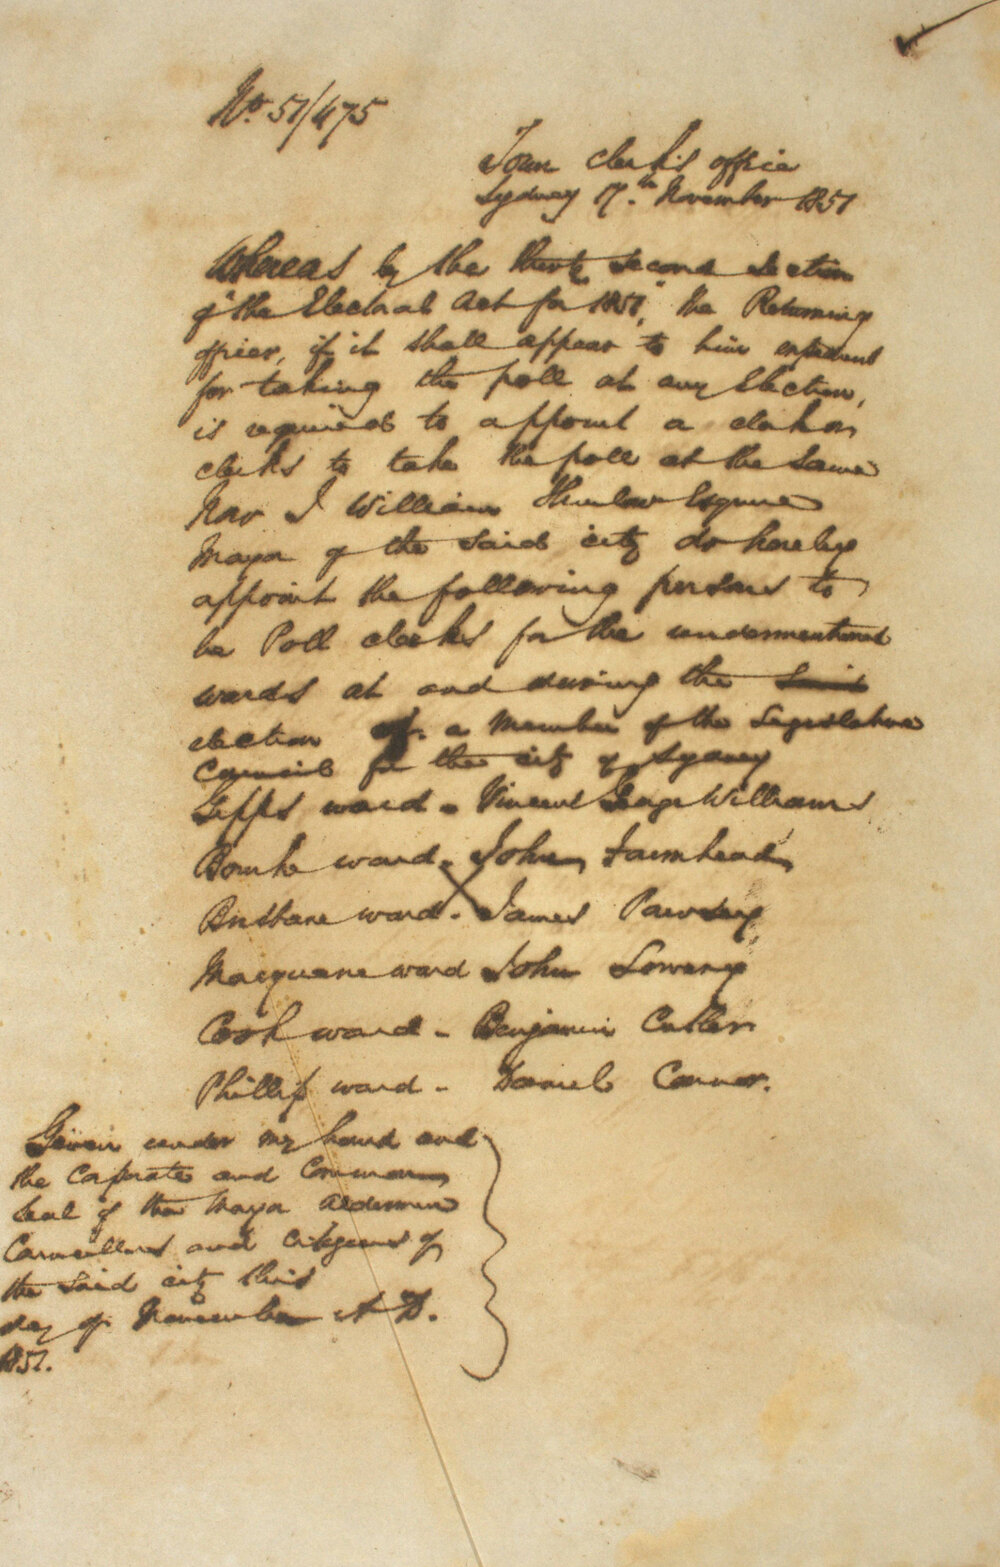 No. 51/475
Town clerk's office
Sydney 17th. November 1851
Whereas by the thirty second section
of "the Electoral Act for 1851," the Returning
officer, if it shall appear to him expedient
for taking the poll at any Election,
is required to appoint a clerk or
clerks to take the poll at the same
Now I William Thurlow Esquire
Mayor of the said city do hereby
appoint the following persons to
be Poll clerks for the undermentioned
wards at and during the said
election of a Member of the Legislative
Council for the city of Sydney
Gipps ward - Vincent George Williams
Bourke ward - John Fairnhead
Brisbane ward - James Pawsey
Macquarie ward John Lowery
Cook ward - Benjamin Cutler
Phillip ward - Daniel Connor.
Given under my hand and
the Corporate and Common
Seal of the Mayor Aldermen
Councillors and Citizens of
the said city this
day of November A D.
1851.